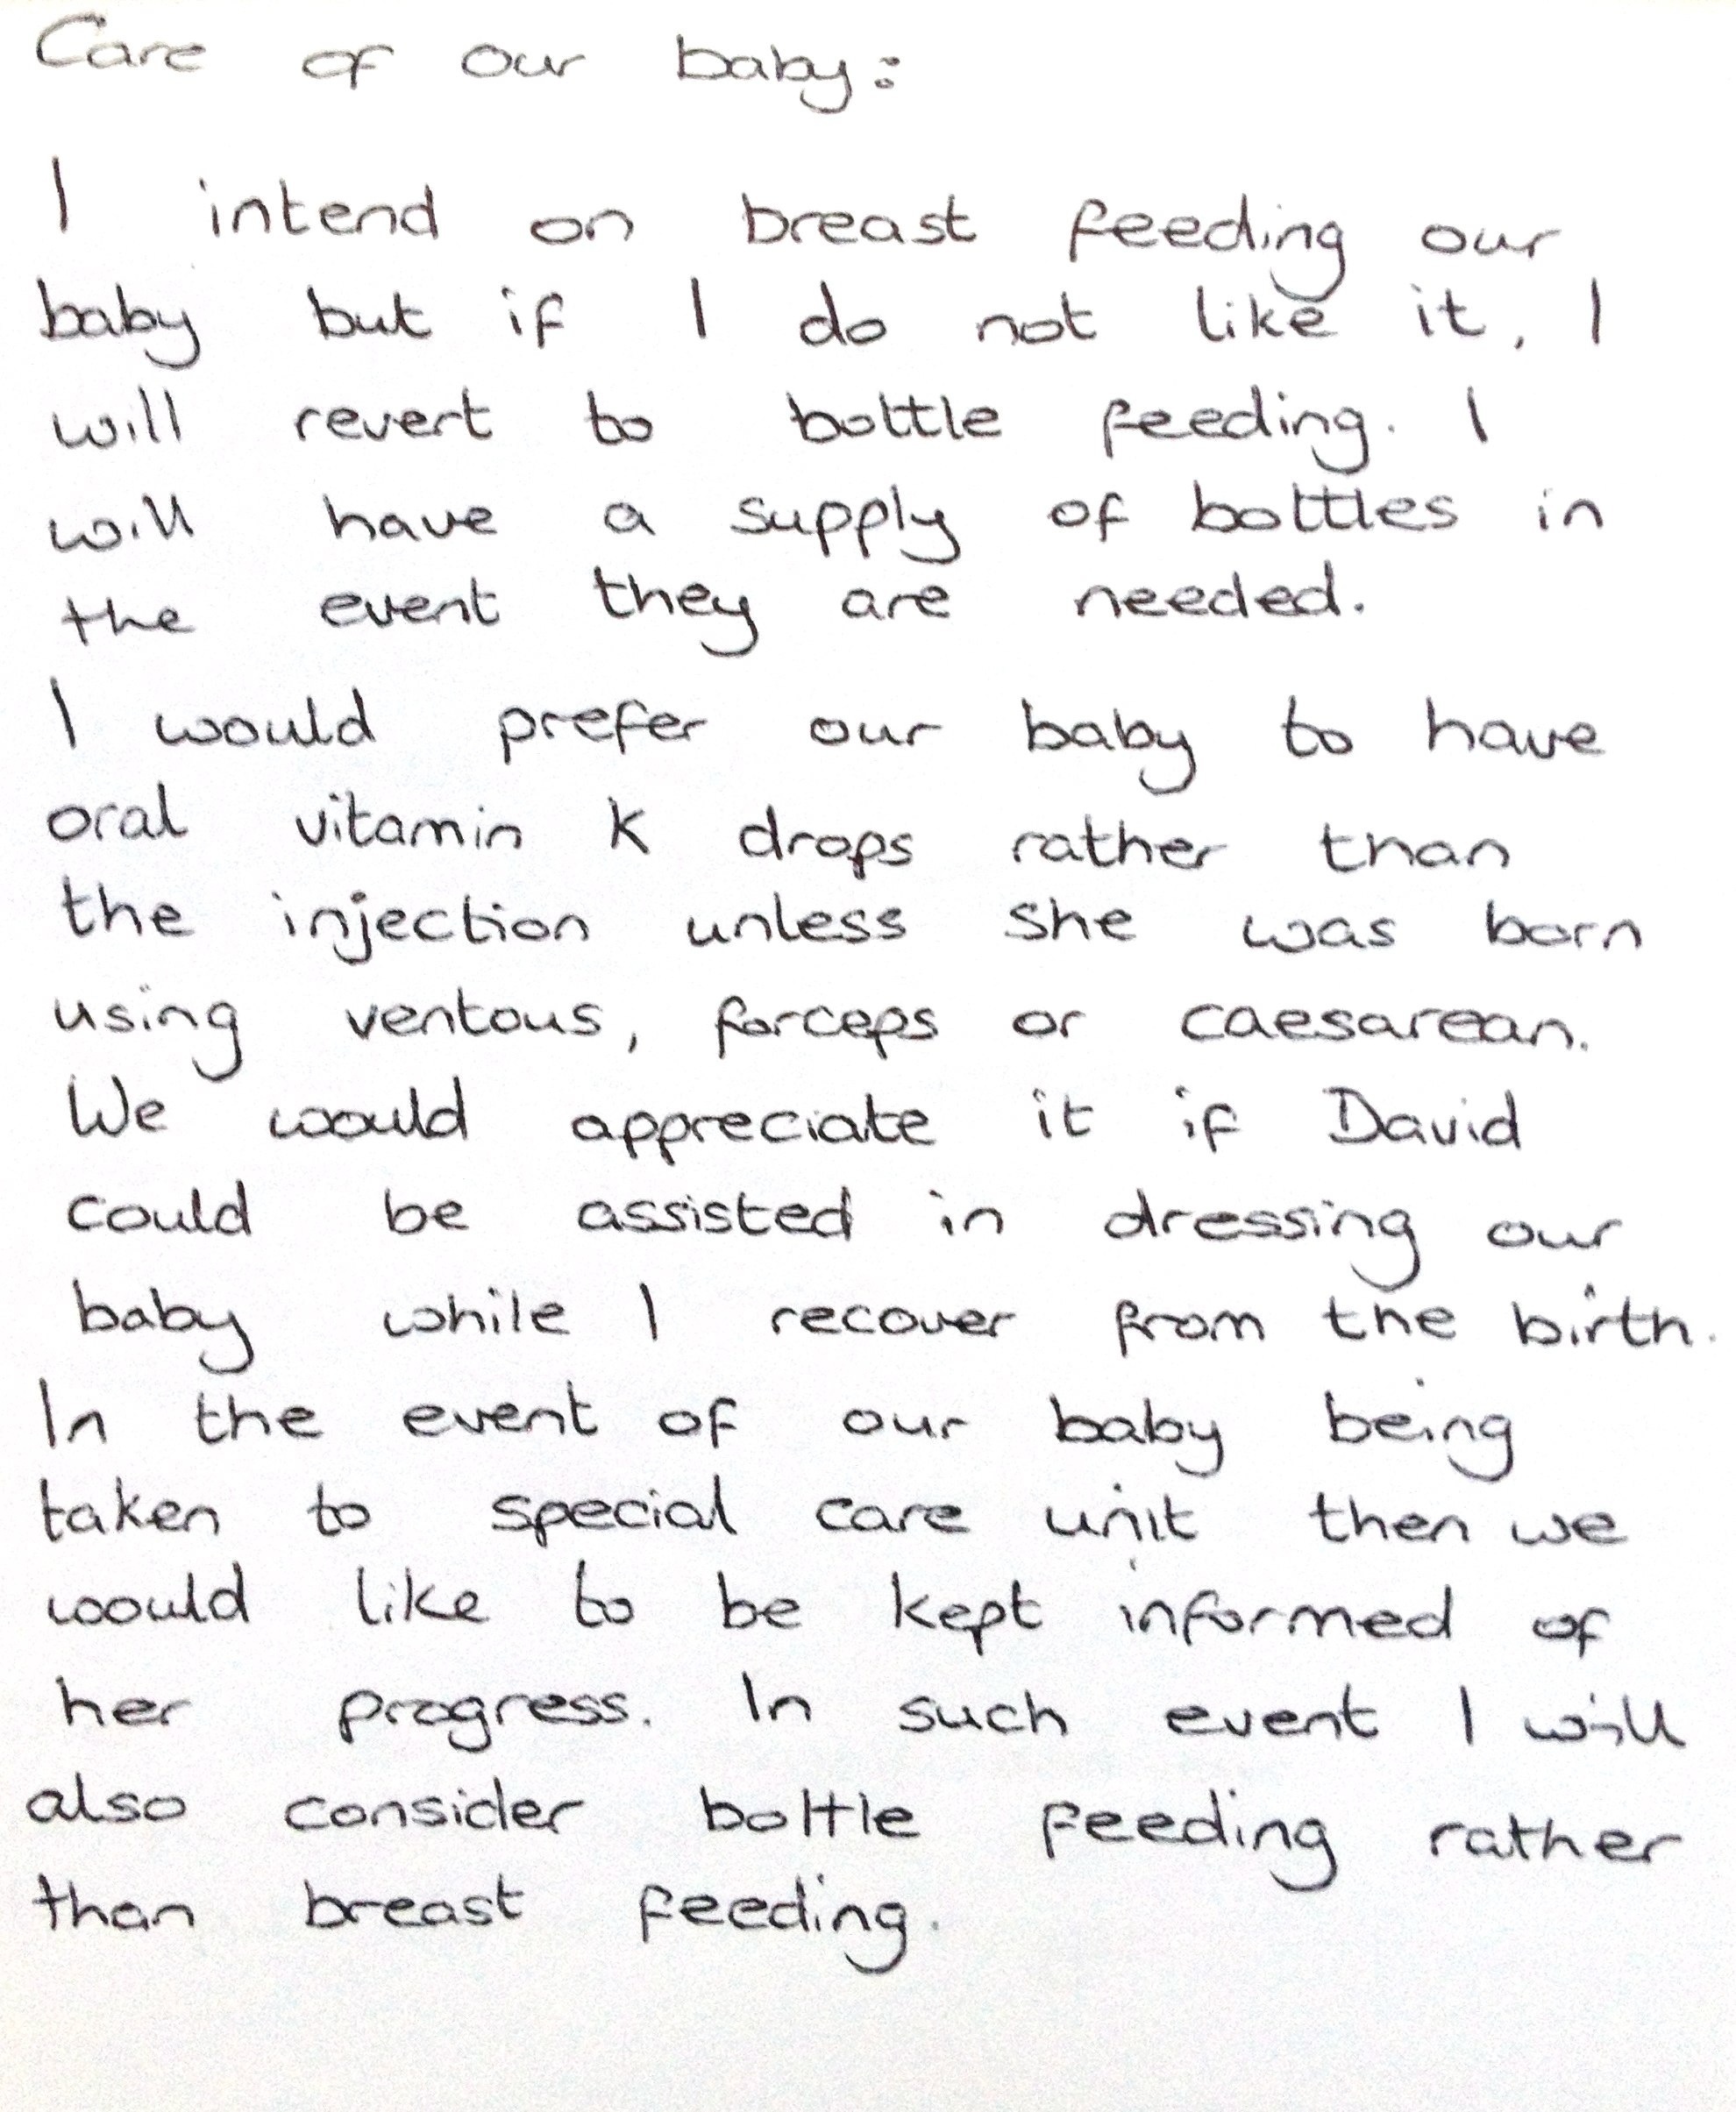 Care of our baby:
I intend on breast feeding our
baby but if I do not like it, I
will revert to bottle feeding. I
will have a supply of bottles in
the event they are needed.
I would prefer our baby to have
oral vitamin K drops rather than
the injection unless she was born
using ventous, forceps or caesarean.
We would appreciate it if David
could be assisted in dressing our
baby while I recover from the birth.
In the event of our baby being
taken to special care unit then we
would like to be kept informed of
her progress. In such event I will
also consider bottle feeding rather
than breast feeding.